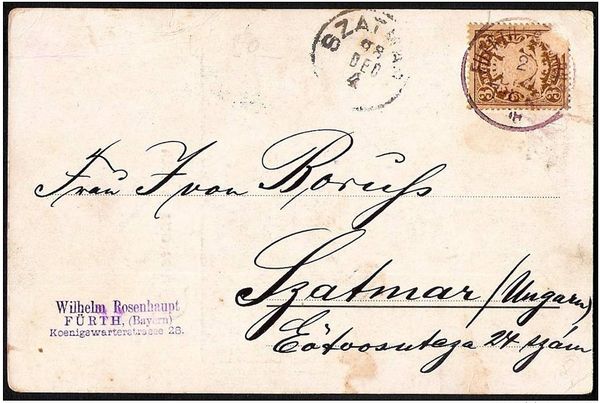 SZATMÁR
98
DEC
4
3
2
3
Frau J von Boruss
Szatmar (Ungarn)
Eötvosutcza 24 szám
Wilhelm Rosenhaupt
FÜRTH, (Bayern)
Koenigswarterstrasse 26.